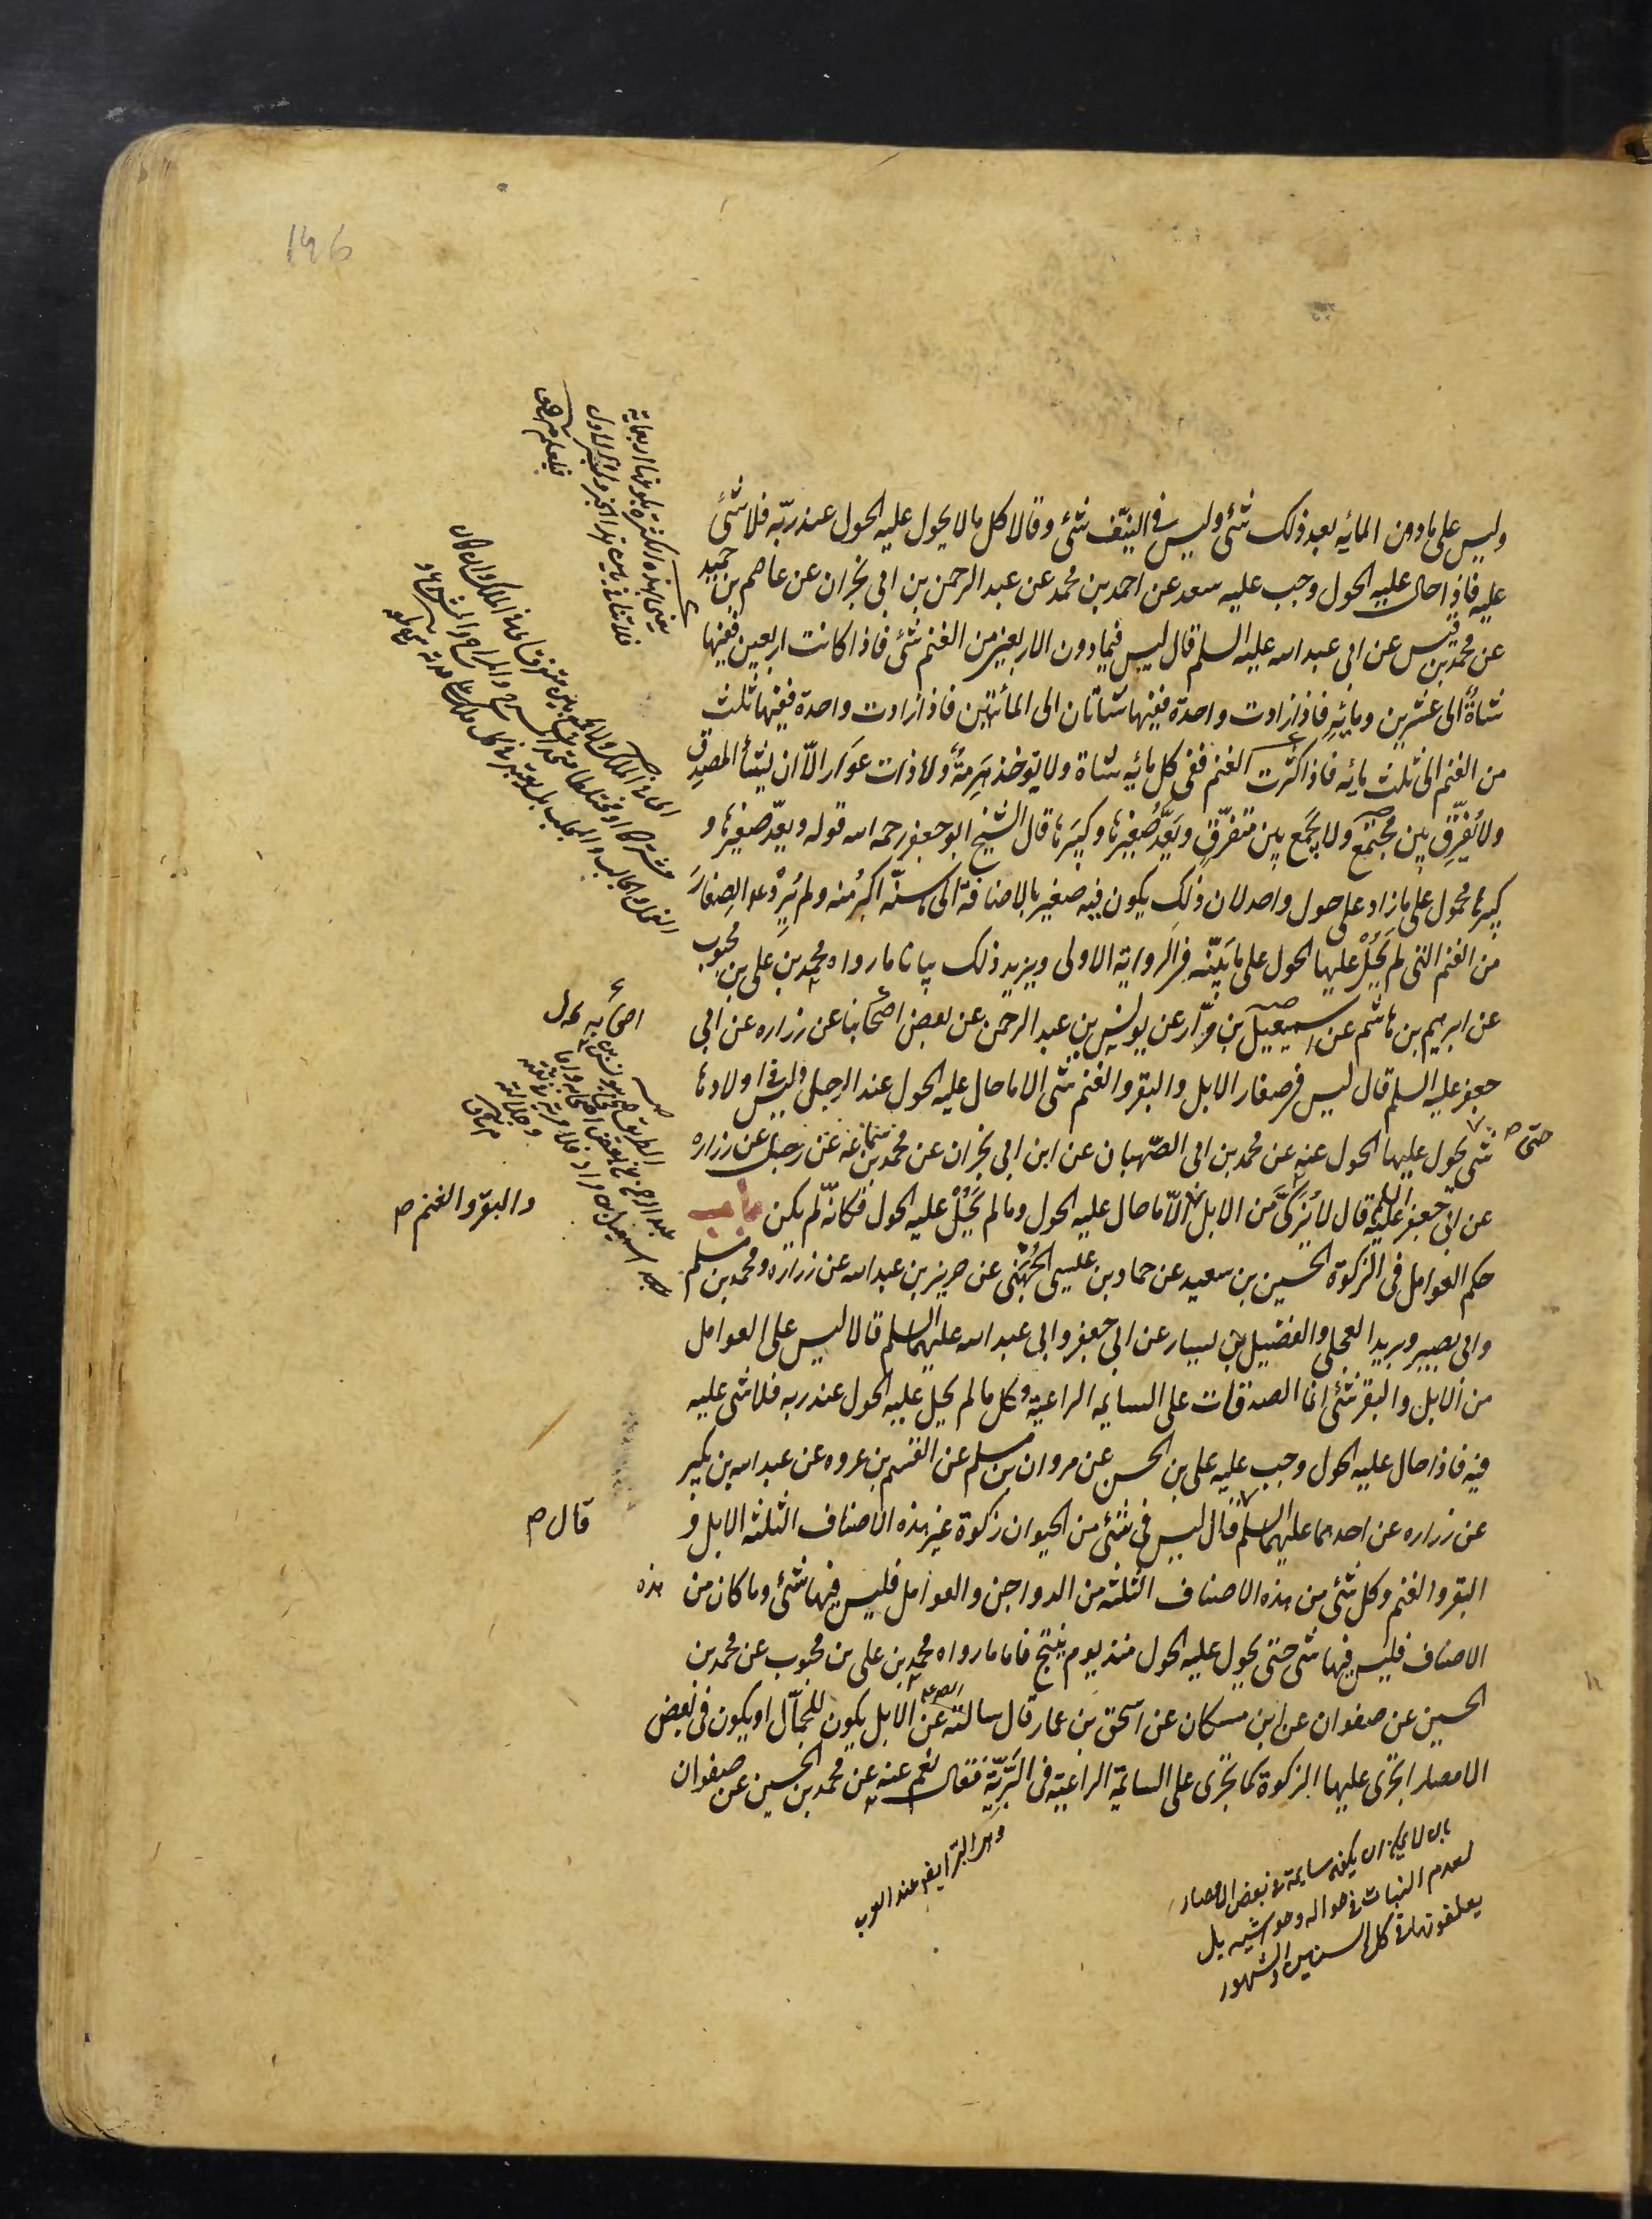 وليس على ما دون المائه بعد ذلك شئ وليس في النيّف شئ وقالا كل ما لا يحول عليه الحول عند ربّه فلا شئ
عليه فاذا حال عليه الحول وجب عليه سعد عن احمد بن محمد عن عبد الرحمن بن ابي نجران عن عاصم بن حميد
عن محمد بن قيس عن ابي عبد الله عليه السلم قال ليس فيما دون الاربعين من الغنم شئ فاذا كانت اربعين ففيها
شاة الى عشرين ومائه فاذا زادت واحدة ففيها شاتان الى المائتين فاذا زادت واحدة ففيها ثلث
من الغنم الى ثلث مائه فاذا كثرت الغنم ففي كل مائه شاة ولا يؤخذ هَرِمةٌ ولا ذات عَوَار الاّ ان يشأ المصدق
ولا يُفرّق بين مجتمع ولا يُجمع بين متفرّق ويَعُدّ صغيرها وكبيرها قال الشيخ ابو جعفر رحمه الله قوله ويعدّ صغيرها و
كبيرها محمول على ما زاد على حول واحد لان ذلك يكون فيه صغير بالاضافة الى ما سنّه اكبر منه ولم يُرِدْ عد الصِغار
من الغنم التي لم يَحُلْ عليها الحول على ما بَيّنّه في الرواية الاولى ويزيد ذلك بيانا ما رواه محمد بن علي بن محبوب
عن ابرهيم بن هاشم عن اسمعيل بن مرّار عن يونس بن عبد الرحمن عن بعض اصحابنا عن زراره عن ابي
جعفر عليه السلم قال ليس في صغار الابل والبقر والغنم شئ الا ما حال عليه الحول عند الرجل وليس في اولادها
شئ يحول عليها الحول عنه عن محمد بن ابي الصّهبان عن ابن ابي نجران عن محمد بن سماعه عن رجل عن زراره
حتى ص
عن ابي جعفر عليه السلم قال لا يُزكّى من الابل الاّ ما حال عليه الحول وما لم يَحُلْ عليه الحول فكانّه لم يكن باب
والبقر والغنم ص
حكم العوامل في الزكوة الحسين بن سعيد عن حماد بن عيسى الجُهَنى عن حريز بن عبد الله عن زراره ومحمد بن مسلم
وابي بصير وبريد العجلي والفضيل بن يسار عن ابي جعفر وابي عبد الله عليهما السلم قالا ليس على العوامل
من الابل والبقر شئ انما الصدقات على السايمه الراعية وكل ما لم يحل عليه الحول عند ربه فلا شئ عليه
فيه فاذا حال عليه الحول وجب عليه علي بن الحسن عن مروان بن مسلم عن القسم بن عروه عن عبد الله بن بكير
عن زراره عن احدهما عليهما السلم قال ليس في شئ من الحيوان زكوة غير هذه الاصناف الثلثه الابل و
قال ص
البقر والغنم وكل شئ من هذه الاصناف الثلثه من الدواجن والعوامل فليس فيها شئ وما كان من هذه
الاصناف فليس فيها شئ حتى يحول عليه الحول منذ يوم ينتج فاما ما رواه محمد بن علي بن محبوب عن محمد بن
الحسين عن صفوان عن ابن مسكان عن اسحق بن عمار قال سالته عن الابل يكون للجمّال او يكون في بعض
الامصار اتجرى عليها الزكوة كما تجرى على السائمة الراعية في البَرِّيّة فقال نعم عنه عن محمد بن الحسين عن صفوان
بل لا يمكن ان يكون سايمة في بعض الامصار
لعدم النبات في حواله وحواشيه بل
يعلفونها في كل السنين والشهور
146